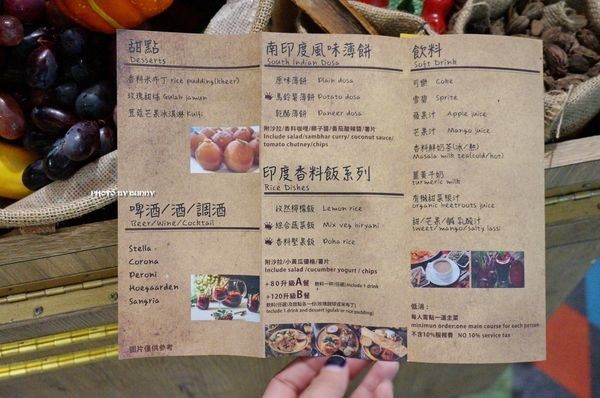 甜點
Desserts
香料米布丁 rice pudding(kheer)
玫瑰甜球 Gulab jamun
荳蔻芒果冰淇淋 Kulfi
啤酒/酒/調酒
Beer/Wine/Cocktail
Stella
Corona
Peroni
Hoegaarden
Sangria
圖片僅供參考
南印度風味薄餅
South Indian Dosa
原味薄餅 Plain dosa
馬鈴薯薄餅 Potato dosa
乾酪薄餅 Paneer dosa
附沙拉/香料咖哩/椰子醬/番茄酸辣醬/薯片
Include salad/sambhar curry/coconut sauce/
tomato chutney/chips
印度香料飯系列
Rice Dishes
孜然檸檬飯 Lemon rice
綜合蔬菜飯 Mix veg biryani
香料堅果飯 Poha rice
附沙拉/小黃瓜優格/薯片
Include salad /cucumber yogurt / chips
+80升級A餐 飲料一杯(任選) Include 1 drink
+120升級B餐
飲料(任選)及甜點各一份(玫瑰甜球或米布丁)
Include 1 drink and dessert (gulab or rice pudding)
飲料
Soft Drink
可樂 Coke
雪碧 Sprite
蘋果汁 Apple juice
芒果汁 Mango juice
香料鮮奶茶(冰/熱)
Masala milk tea(cold/hot)
薑黃牛奶
turmeric milk
有機甜菜根汁
organic beetroots juice
甜/芒果/鹹 乳酸汁
sweet/mango/salty lassi
低消：
每人需點一道主菜
minimun order:one main course for each person
不含10%服務費 NO 10% service tax
PHOTO BY BUNNY